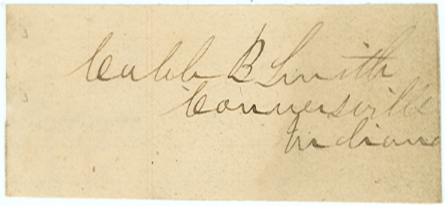 Caleb B Smith
Connersville
Indiana